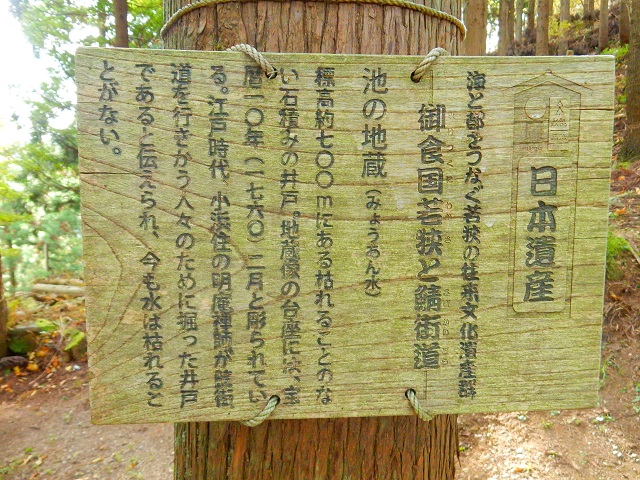 日本遺産
海と都をつなぐ若狭の往来文化遺産群
御食国若狭と鯖街道
池の地蔵（みょうあん水）
標高約七〇〇mにある枯れることのな
い石積みの井戸。地蔵像の台座には、宝
暦一〇年（一七六〇）二月と彫られてい
る。江戸時代、小浜住の明庵禅師が鯖街
道を行きかう人々のために掘った井戸
であると伝えられ、今も水は枯れるこ
とがない。